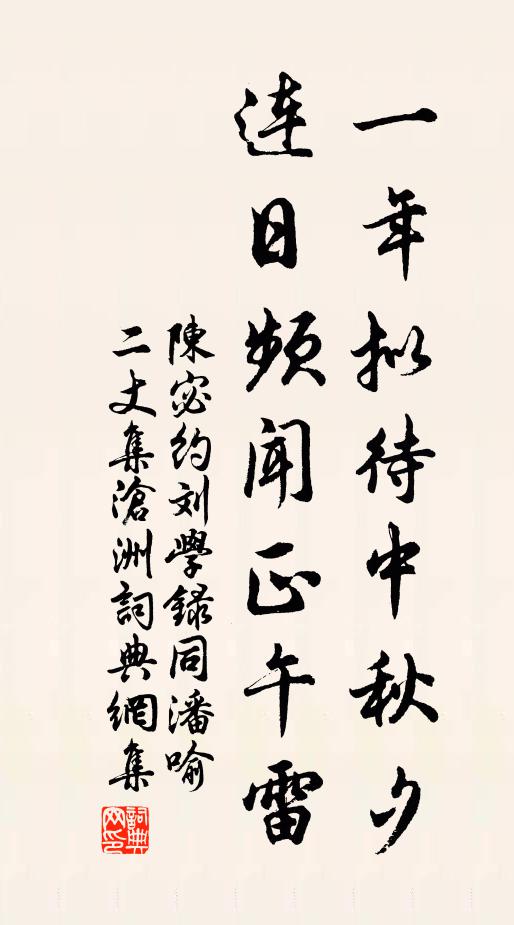 一年拟待中秋夕
連日頻聞正午雷
陳宓約刘學録同潘喻
二丈集滄洲詞典網集
詞典
网印